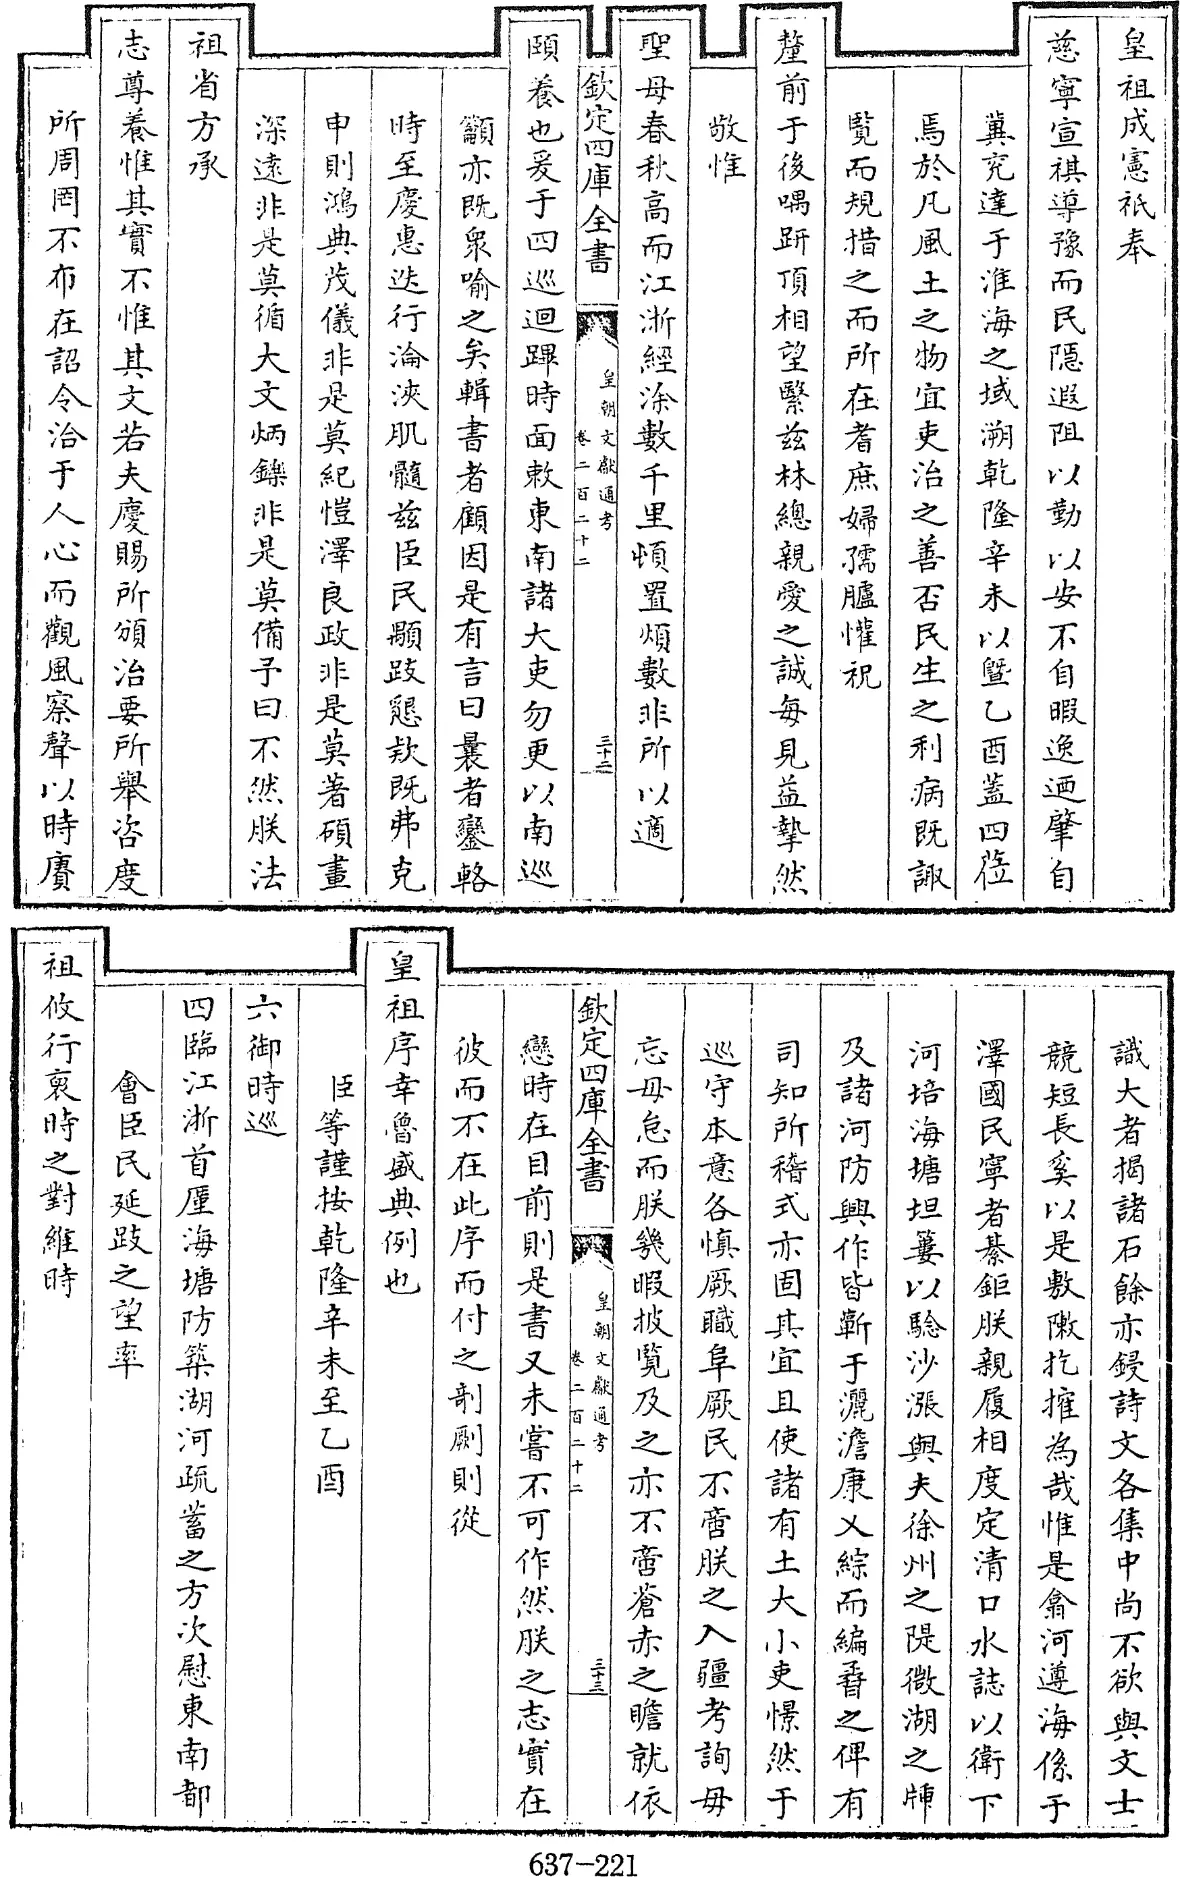 皇祖成憲祇奉
慈寧宣祺導豫而民隱遐阻以勤以安不自暇逸廼肇自
冀兖達于淮海之域溯乾隆辛未以暨乙酉蓋四蒞
焉於凡風土之物宜吏治之善否民生之利病既諏
覽而規措之而所在耆庶婦孺臚懽祝
釐前于後喁趼頂相望繄兹林總親愛之誠每見益摯然
敬惟
聖母春秋高而江浙經涂數千里頓置煩數非所以適
欽定四庫全書
皇朝文獻通考
卷二百二十二
三十二
頤養也爰于四巡迴蹕時面敕東南諸大吏勿更以南巡
籲亦既衆喻之矣輯書者顧因是有言曰曩者鑾輅
時至慶惠迭行淪浹肌髓兹臣民顒跂懇欵既弗克
申則鴻典茂儀非是莫紀愷澤良政非是莫著碩畫
深遠非是莫循大文炳鑠非是莫備予曰不然朕法
祖省方承
志尊養惟其實不惟其文若夫慶賜所頒治要所舉咨度
所周罔不布在詔令洽于人心而觀風察聲以時賡
識大者揭諸石餘亦鋟詩文各集中尚不欲與文士
競短長奚以是敷陳扢搉為哉惟是翕河遵海係于
澤國民寧者綦鉅朕親履相度定清口水誌以衛下
河培海塘坦簍以騐沙漲與夫徐州之隄微湖之牐
及諸河防興作皆蘄于灑澹康乂綜而編畨之俾有
司知所稽式亦固其宜且使諸有土大小吏憬然于
巡守本意各慎厥職阜厥民不啻朕之入疆考詢毋
忘毋怠而朕幾暇披覽及之亦不啻蒼赤之瞻就依
欽定四庫全書
皇朝文獻通考
卷二百二十二
三十三
戀時在目前則是書又未嘗不可作然朕之志實在
彼而不在此序而付之剞劂則從
皇祖序幸魯盛典例也
臣等謹按乾隆辛未至乙酉
六御時巡
四臨江浙首厪海塘防築湖河疏蓄之方次慰東南都
會臣民延跂之望率
祖攸行裒時之對維時
637-221